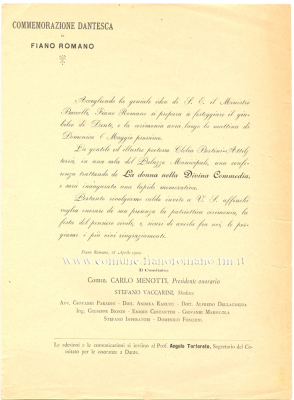 COMMEMORAZIONE DANTESCA
IN
FIANO ROMANO
Accogliendo la geniale idea di S. E. il Ministro
Baccelli, Fiano Romano si prepara a festeggiare il giu-
bileo di Dante, e la cerimonia avrà luogo la mattina di
Domenica 6 Maggio prossimo.
La gentile ed illustre poetessa Clelia Bertini-Attilj
terrà, in una sala del Palazzo Municipale, una confe-
renza trattando de La donna nella Divina Commedia,
e sarà inaugurata una lapide memorativa.
Pertanto rivolgiamo caldo invito a V. S. affinchè
voglia onorare di sua presenza la patriottica cerimonia, la
festa del pensiero civile, e mentre le porgia-
mo i più vivi ringraziamenti.
Fiano Romano, Aprile 1900.
www.comune.fianoromano.rm.it
Il Comitato
Comm. CARLO MENOTTI, Presidente onorario
STEFANO VACCARINI, Sindaco
Avv. Giovanni Paradisi - Dott. Andrea - Dott. Alfredo
Ing. Giuseppe Biondi - Erminio Costantini - Giovanni
Stefano Imperatori - Domenico
Le adesioni e le comunicazioni si inviino al Prof. Angelo Tortoreto, Segretario del Co-
mitato per le onoranze a Dante.